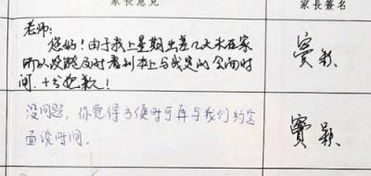 家长意见 家长签名
老师：
您好！由于我上星期出差几天未在家
所以没能及时看到本上与我定的会面时
间，十分抱歉！
窦颖
没问题，你觉得方便时可再与我们约定
面谈时间。
窦颖